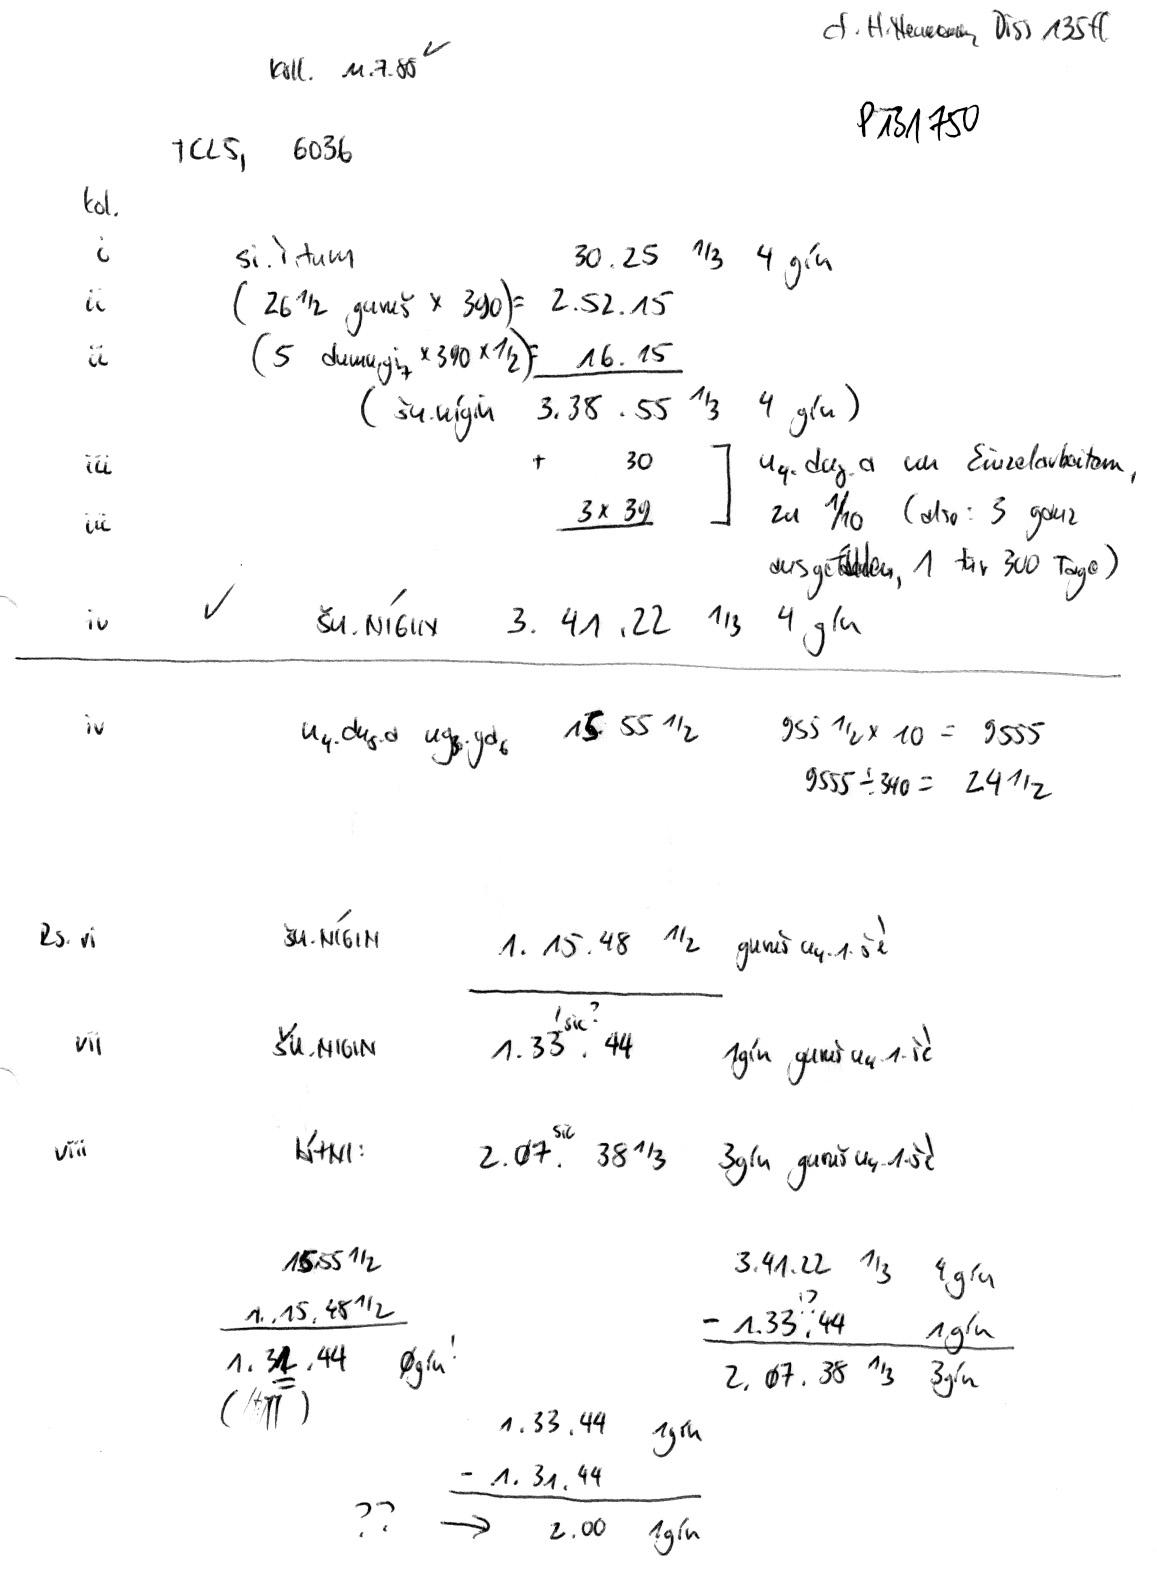 cf. H. Neumann, Diss 135ff
koll. 11.7.88 ✓
P131750
TCL5, 6036
kol.
i si.ì.tum 30.25 1/3 4 gín
ii ( 26 1/2 guruš × 390)= 2.52.15
ii (5 dumu.gi7 ×390×1/2)= 16.15
( šu.nígin 3.38.55 1/3 4 gín )
iii + 30 ] u4.du8.a von Einzelarbeitern,
iii 3×39 zu 1/10 (also: 3 ganz
1 für 300 Tage)
iv ✓ ŠU.NÍGIN 3.41.22 1/3 4 gín
iv u4.du8.a ug3.ga6 15 55 1/2 955 1/2 × 10 = 9555
9555÷390 = 24 1/2
Rs. vi ŠU.NÍGIN 1.15.48 1/2 guruš u4.1.šè
! sic?
vii ŠU.NIGIN 1.33.44 1gín guruš u4.1.šè
sic
viii LÍ+NI: 2.07.38 1/3 3gín guruš u4.1.šè
15.55 1/2 3.41.22 1/3 4gín
!?
1.15.48 1/2 - 1.33.44 1gín
1.31.44 0gín! 2.07.38 1/3 3gín
1.33.44 1gín
- 1.31.44
?? → 2.00 1gín